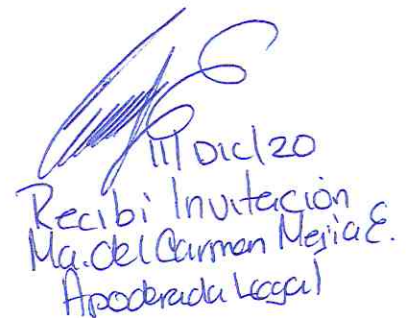 11/Dic/20
Recibi Invitación
Ma. del Carmen Mejia E.
Apoderada Legal